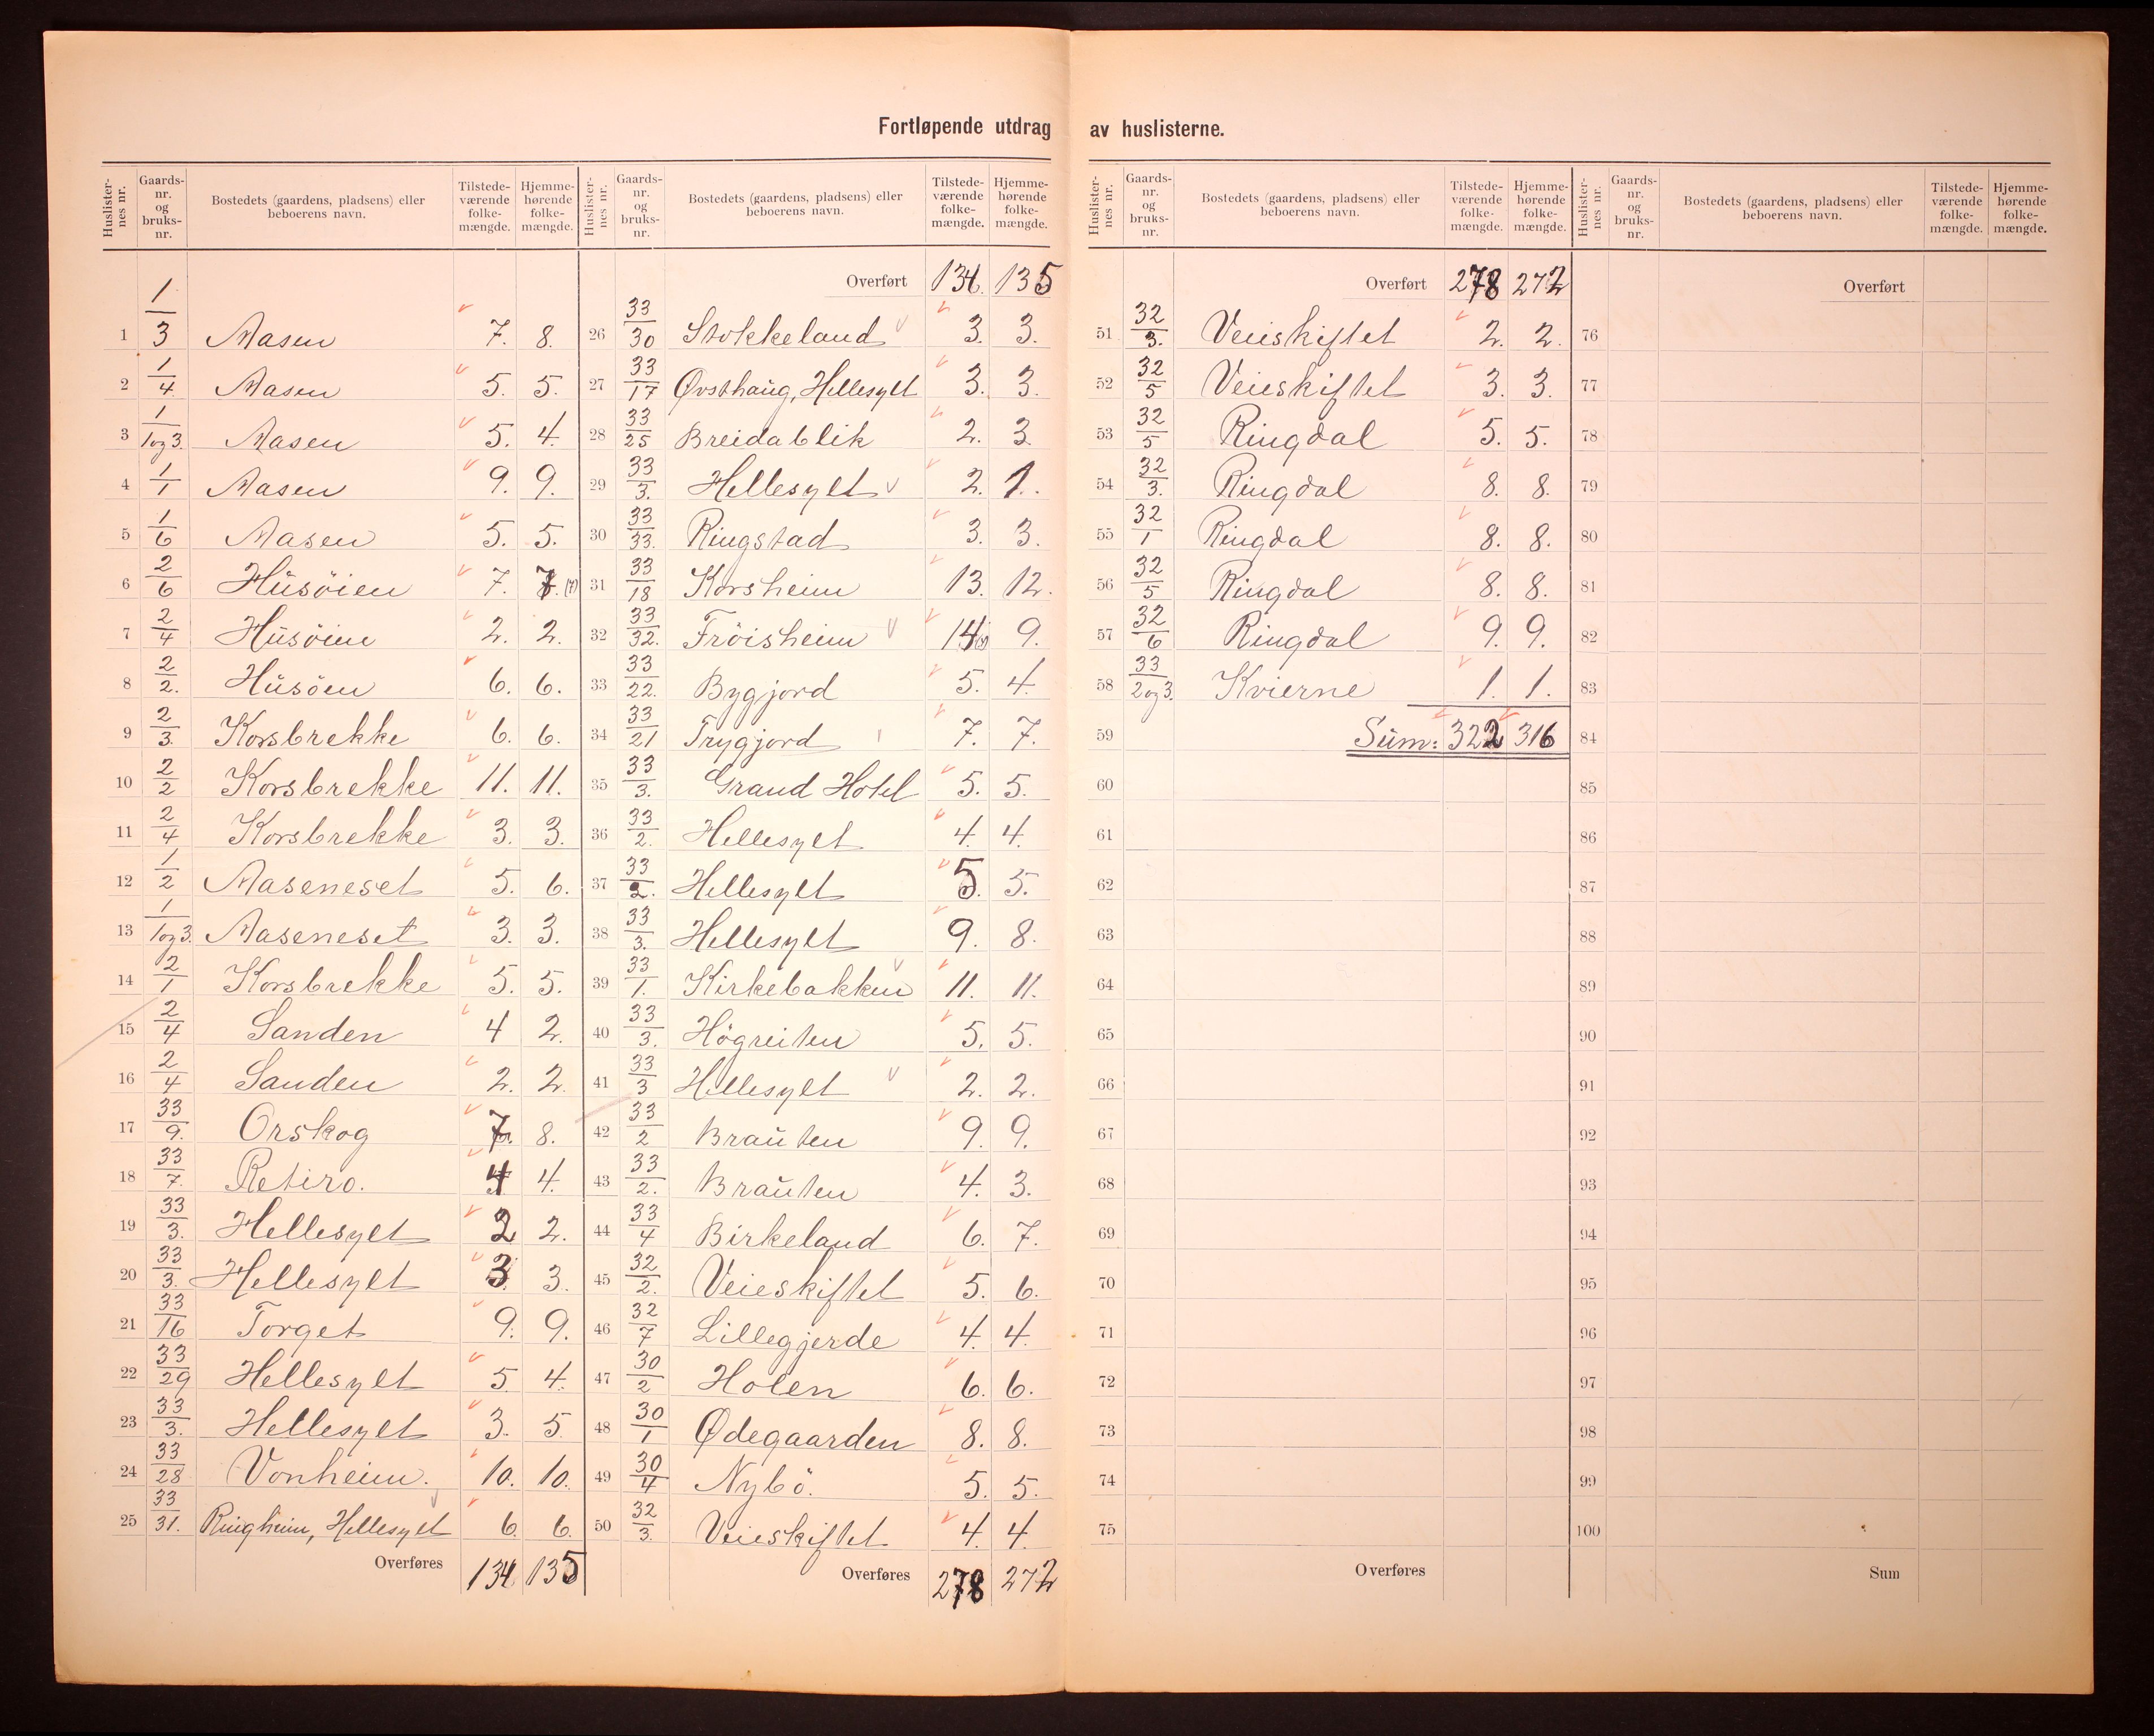 Fortløpende utdrag av huslisterne.
Huslisternes nr. Gaards-nr. og bruks-nr. Bostedets (gaardens, pladsens) eller beboerens navn. Tilstedeværende folkemængde. Hjemmehørende folkemængde.
1 1/3 Aasen 7. 8.
2 1/4. Aasen 5. 5.
3 1/1og3. Aasen 5. 4.
4 1/1 Aasen 9. 9.
5 1/6 Aasen 5. 5.
6 2/6 Husöien 7. 7. (7)
7 2/4 Husöien 2. 2.
8 2/2. Husöen 6. 6.
9 2/3. Korsbrekke 6. 6.
10 2/2 Korsbrekke 11. 11.
11 2/4 Korsbrekke 3. 3.
12 1/2 Aaseneset 5. 6.
13 1/1og3. Aaseneset 3. 3.
14 2/1 Korsbrekke 5. 5.
15 2/4 Sanden 4 2.
16 2/4 Sanden 2. 2.
17 33/9. Orskog 7. 8.
18 33/7. Retiro. 4 4.
19 33/3. Hellesylt 2 2.
20 33/3. Hellesylt 3 3.
21 33/16 Torget 9. 9.
22 33/29 Hellesylt 5 4.
23 33/3. Hellesylt 3. 5.
24 33/28 Vonheim. 10. 10.
25 33/31. Ringheim, Hellesylt 6. 6.
Overføres 134 135
Huslisternes nr. Gaards-nr. og bruks-nr. Bostedets (gaardens, pladsens) eller beboerens navn. Tilstedeværende folkemængde. Hjemmehørende folkemængde.
Overført 134. 135
26 33/30 Stokkeland 3. 3.
27 33/17 Øvsthaug, Hellesylt 3. 3.
28 33/25 Breidablik 2. 3
29 33/3. Hellesylt 2. 1.
30 33/33. Ringstad 3. 3.
31 33/18 Korsheim 13. 12.
32 33/32. Fröisheim 14 9.
33 33/22. Bygjord 5. 4.
34 33/21 Trygjord 7. 7.
35 33/3. Grand Hotel 5. 5.
36 33/2. Hellesylt 4. 4.
37 33/2. Hellesylt 5. 5.
38 33/3. Hellesylt 9. 8.
39 33/1. Kirkebakken 11. 11.
40 33/3. Högreiten 5. 5.
41 33/3 Hellesylt 2. 2.
42 33/2 Brauten 9. 9.
43 33/2. Brauten 4. 3.
44 33/4 Birkeland 6. 7.
45 32/2. Veieskiftet 5. 6.
46 32/7 Lillegjerde 4. 4.
47 30/2 Holen 6. 6.
48 30/1 Ødegaarden 8. 8.
49 30/4 Nybö. 5. 5.
50 32/3. Veieskiftet 4. 4.
Overføres 278 272
Huslisternes nr. Gaards-nr. og bruks-nr. Bostedets (gaardens, pladsens) eller beboerens navn. Tilstedeværende folkemængde. Hjemmehørende folkemængde.
Overført 278 272
51 32/3. Veieskiftet 2. 2.
52 32/5 Veieskiftet 3. 3.
53 32/5 Ringdal 5. 5.
54 32/3. Ringdal 8. 8.
55 32/1 Ringdal 8. 8.
56 32/5 Ringdal 8. 8.
57 32/6 Ringdal 9. 9.
58 33/2og3. Kvierne 1. 1.
59 Sum: 322 316
60
61
62
63
64
65
66
67
68
69
70
71
72
73
74
75
Overføres
Huslisternes nr. Gaards-nr. og bruks-nr. Bostedets (gaardens, pladsens) eller beboerens navn. Tilstedeværende folkemængde. Hjemmehørende folkemængde.
Overført
76
77
78
79
80
81
82
83
84
85
86
87
88
89
90
91
92
93
94
95
96
97
98
99
100
Sum